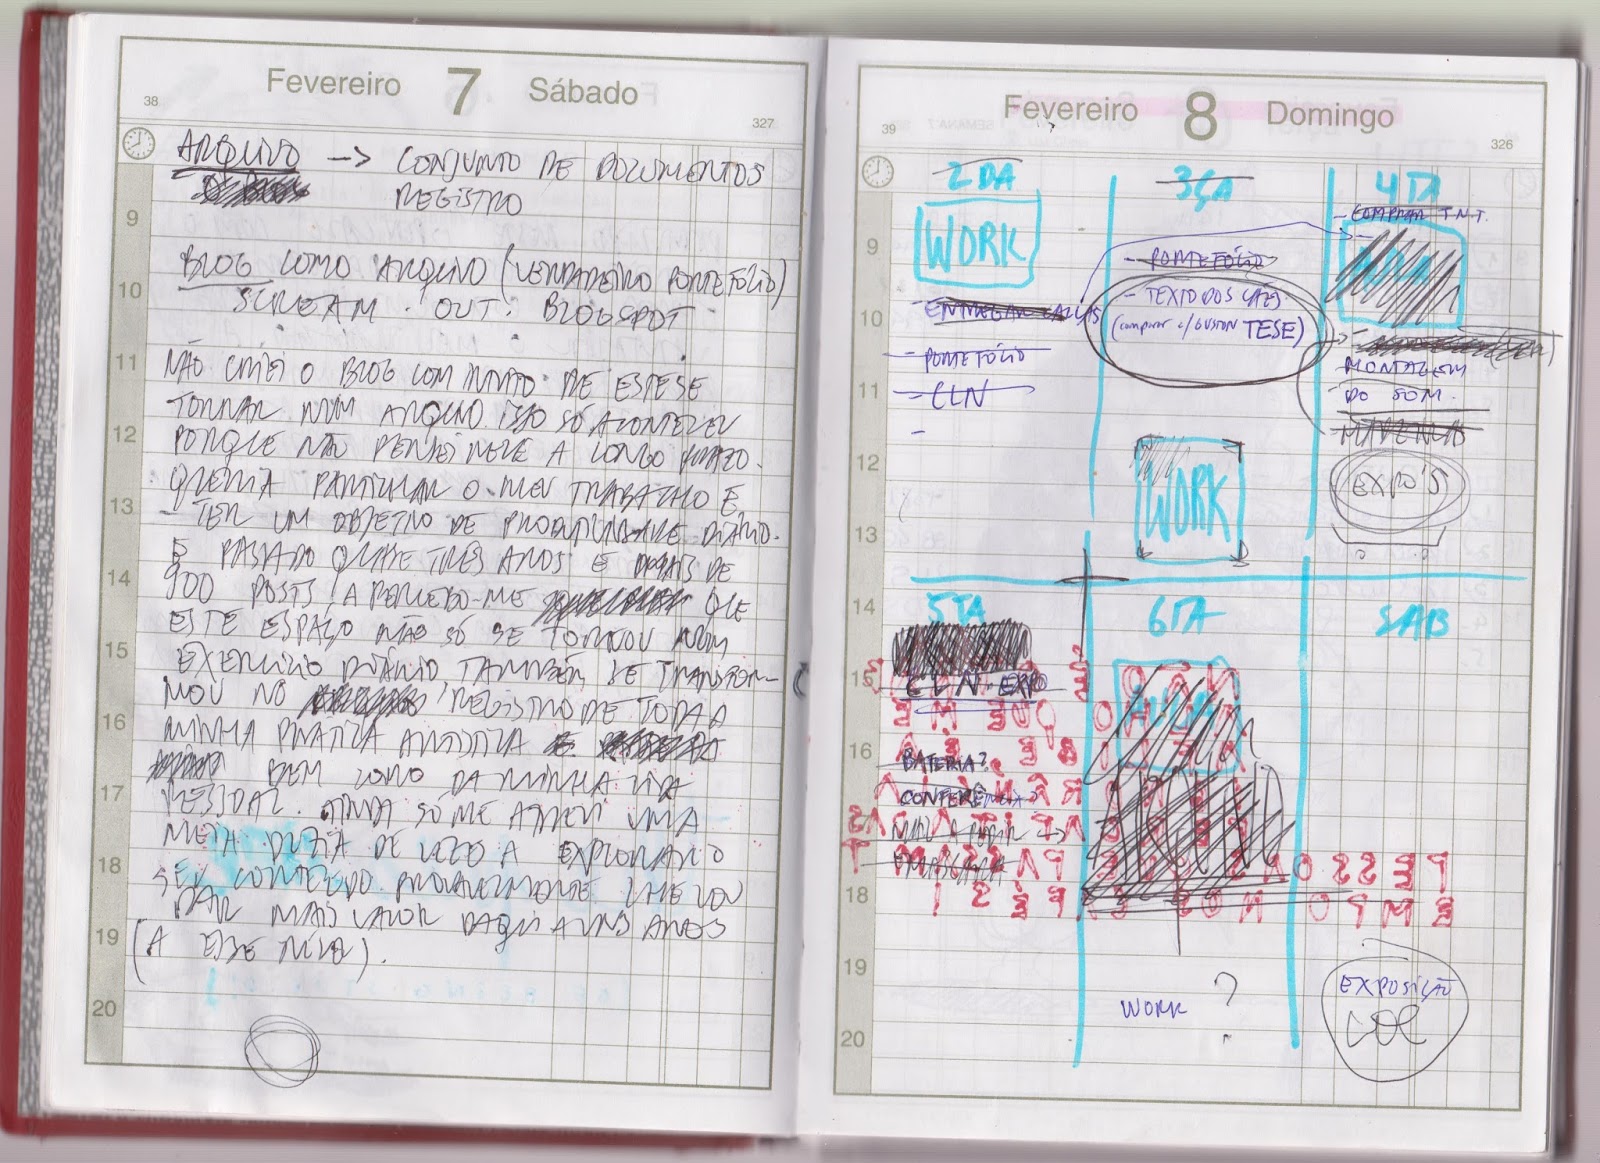 Fevereiro 7 Sábado
38
327
ARQUIVO -> CONJUNTO DE DOCUMENTOS
REGISTRO
9
BLOG COMO ARQUIVO (VERDADEIRO PORTEFÓLIO)
10
SCREAM. OUT. BLOGSPOT
11
NÃO CRIEI O BLOG COM INTUITO DE ESTE SE
TORNAR NUM ARQUIVO. ISSO SÓ ACONTECEU
12
PORQUE NÃO PENSEI NELE A LONGO PRAZO.
QUERIA PARTILHAR O MEU TRABALHO E
13
TER UM OBJETIVO DE PRODUTIVIDADE DIÁRIO.
E PASSADO QUASE TRÊS ANOS E MAIS DE
14
900 POSTS, APERCEBO-ME QUE
ESTE ESPAÇO NÃO SÓ SE TORNOU NUM
15
EXERCÍCIO DIÁRIO TAMBÉM SE TRANSFOR-
MOU NO REGISTRO DE TODA A
16
MINHA PRATICA ARTISTICA
BEM COMO DA MINHA VIDA
17
PESSOAL. AINDA SÓ ME ATREVI UMA
MEIA DUZIA DE VEZES A EXPLORAR O
18
SEU CONTEÚDO. PROVAVELMENTE LHE VOU
DAR MAIS VALOR DAQUI A UNS ANOS
19
(A ESSE NIVEL).
20
Fevereiro 8 Domingo
39
326
2DA 3ÇA 4TA
- COMPRAR T.N.T.
9
WORK
- PORTEFÓLIO
- TEXTO DOS
10
ENTREGAR CALÇAS
(comparar c/ GUSTON TESE)
- PORTEFÓLIO
MONTAGEM
11
- CLN
DO SOM.
-
MATERIAIS
12
WORK
EXPO'S
13
14
5TA 6TA SAB
15
CLN - EXPO
16
BATERIA?
CONFERÊNCIA?
17
18
19
EXPOSIÇÃO
WORK ?
COL
20